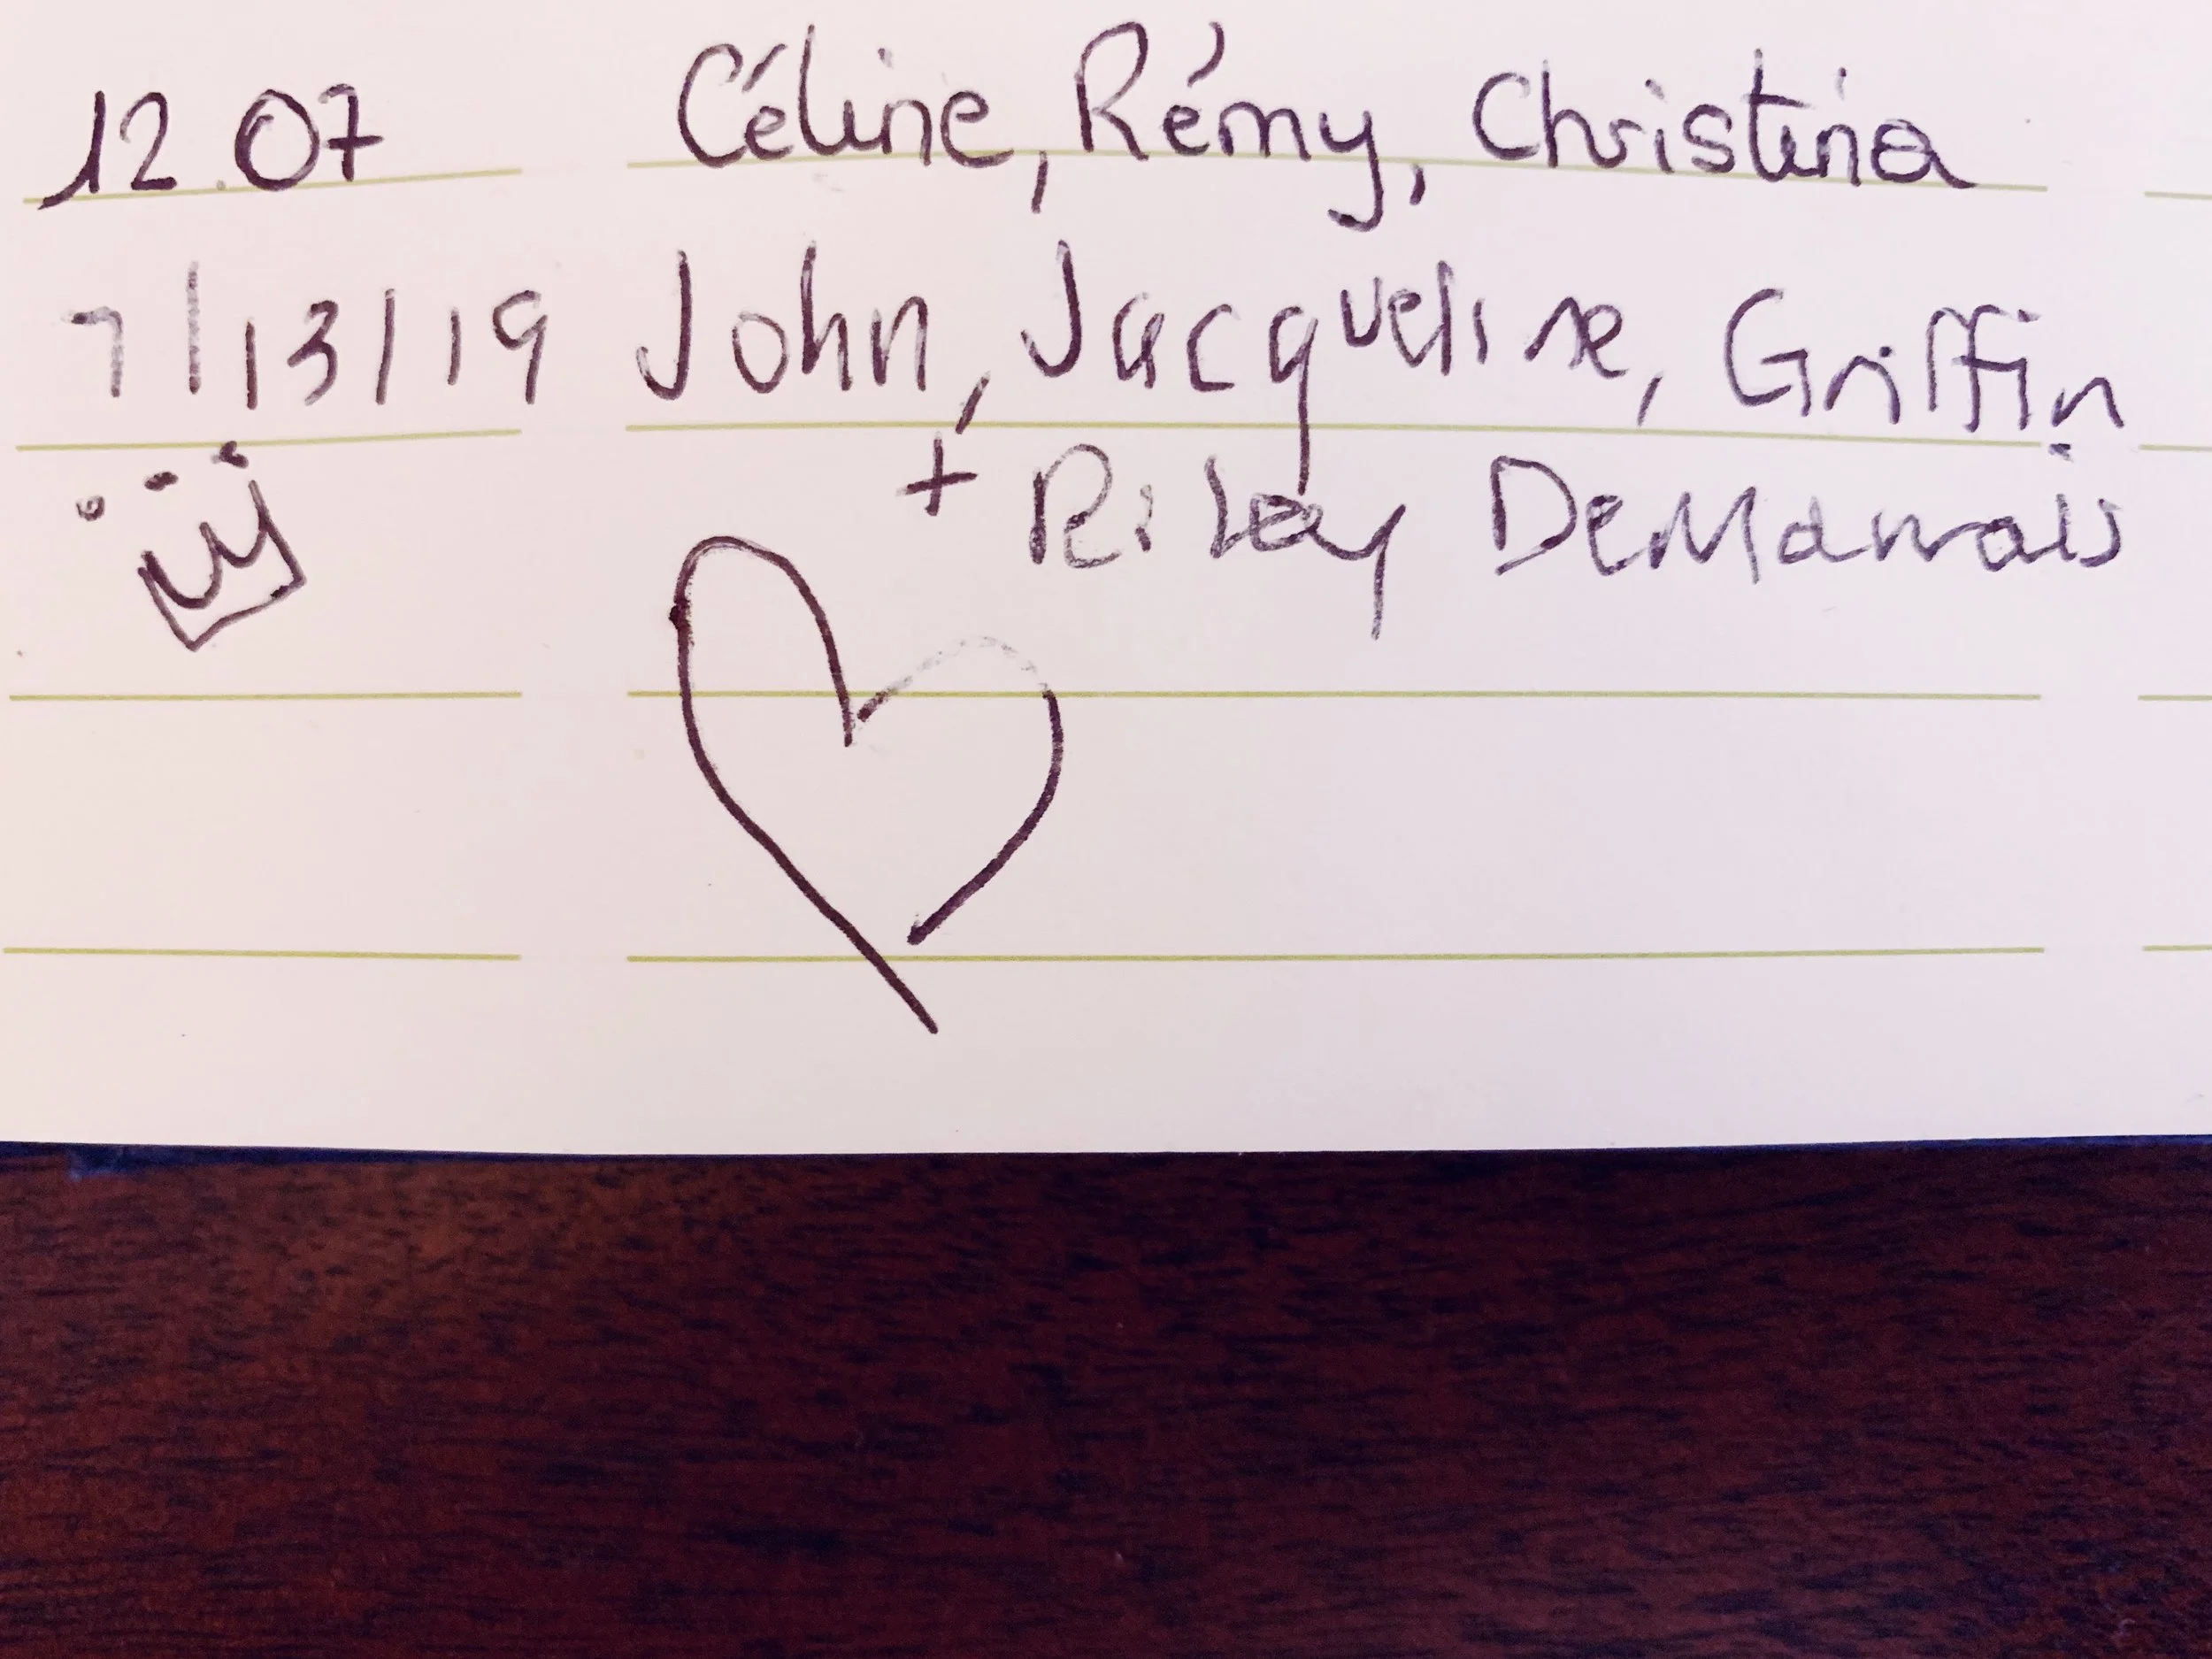 12.07 Céline, Rémy, Christina
7/13/19 John, Jacqueline, Griffin
+ Riley DeMarrais